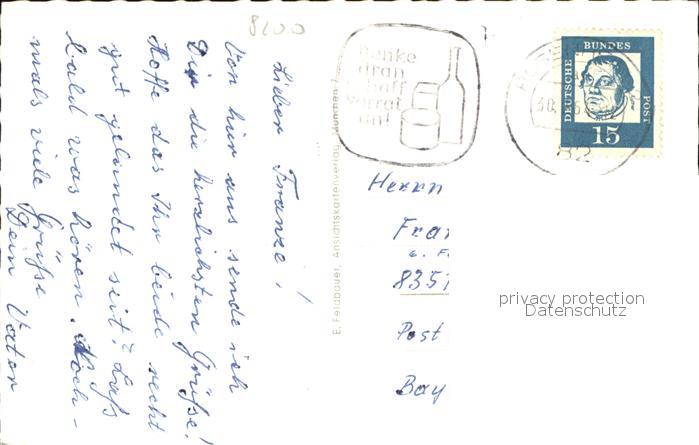 8200
Lieber Franze!
Von hier aus sende ich
Dir die herzlichsten Grüße!
Hoffe das Ihr beide recht
gut gelandet seit? Laß
bald was hören. Noch-
mals viele Grüße
Dein Vater
E. Feldbauer, Ansichtskartenverlag, München
Denke
dran
schaff
Vorrat
an!
30.
82
DEUTSCHE
BUNDES
POST
15
Herrn
Fran
8351
Post
Bay
privacy protection
Datenschutz